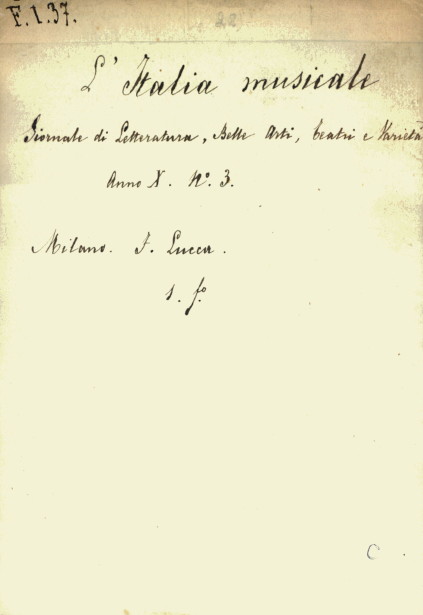 F. 1. 37.
22
L' Italia musicale
Giornale di Letteratura, Belle Arti, Teatri e Varietà
Anno X. No. 3.
Milano. F. Lucca.
1. fo.
C